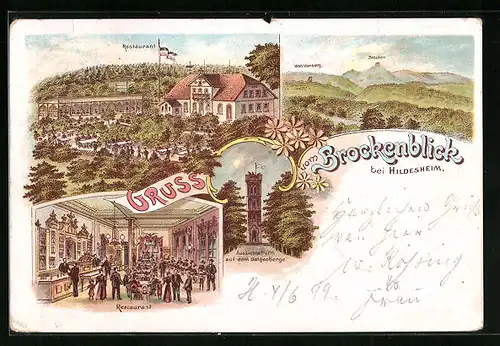 Restaurant
Wohldenberg.
Brocken
GRUSS
vom Brockenblick
bei HILDESHEIM.
Aussichtsthurm
auf dem Galgenberge
Restaurant
Herzlichen Gruß
von Herr
Frau
H. 4/6 99.